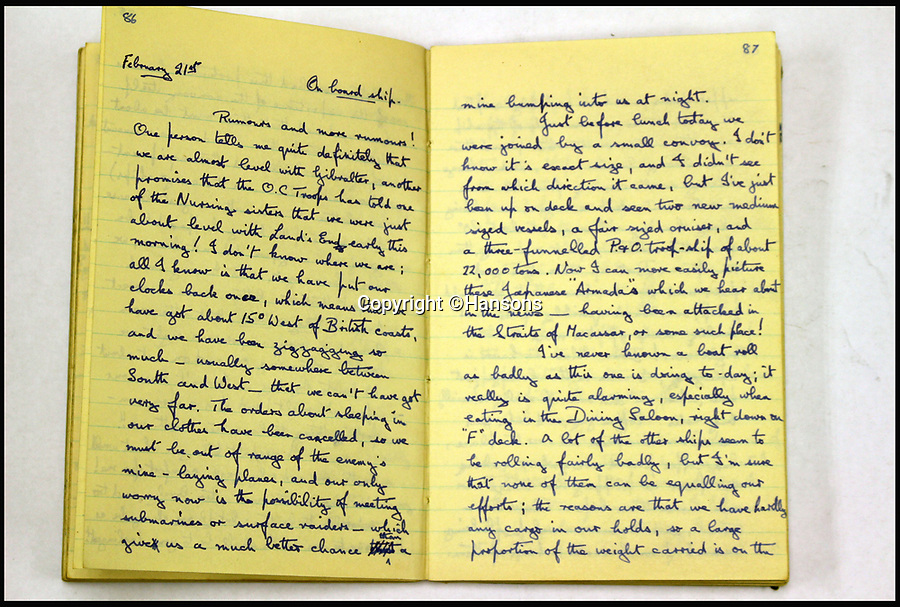 86
February 21st
On board ship.
Rumours and more rumours!
One person tells me quite definitely that
we are almost level with Gibralter, another
promises that the O.C Troops has told one
of the Nursing sisters that we were just
about level with Land's End early this
morning! I don't know where we are;
all I know is that we have put our
clocks back once, which means that we
have got about 15° West of British coasts,
and we have been zigzagging so
much – usually somewhere between
South and West – that we can't have got
very far. The orders about sleeping in
our clothes have been cancelled, so we
must be out of range of the enemy's
mine-laying planes, and our only
worry now is the possibility of meeting
submarines or surface raiders – which
give us a much better chance than a
87
mine bumping into us at night.
Just before lunch today we
were joined by a small convoy. I don't
know it's exact size, and I didn't see
from which direction it came, but I've just
been up on deck and seen two new medium
sized vessels, a fair sized cruiser, and
a three-funnelled P&O. troop-ship of about
22,000 tons. Now I can more easily picture
these Japanese "Armada's which we hear about
in the news – having been attacked in
the Straits of Macassar, or some such place!
I've never known a boat roll
as badly as this one is doing to-day; it
really is quite alarming, especially when
eating in the Dining Saloon, right down on
"F" deck. A lot of the other ships seem to
be rolling fairly badly, but I'm sure
that none of them can be equalling our
efforts; the reasons are that we have hardly
any cargo in our holds, so a large
proportion of the weight carried is on the
Copyright © Hansons